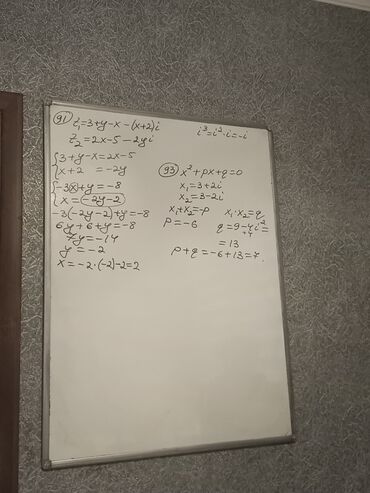 91) z₁=3+y-x-(x+2)i
z₂=2x-5-2yi
{3+y-x=2x-5
x+2 =-2y
{-3x+y=-8
x=-2y-2
-3(-2y-2)+y=-8
6y+6+y=-8
7y=-14
y=-2
x=-2·(-2)-2=2
i³=i²·i=-i
93) x²+px+q=0
x₁=3+2i
x₂=3-2i
x₁+x₂=-p x₁·x₂=q
p=-6 q=9-4i²=
+4
=13
p+q=-6+13=7